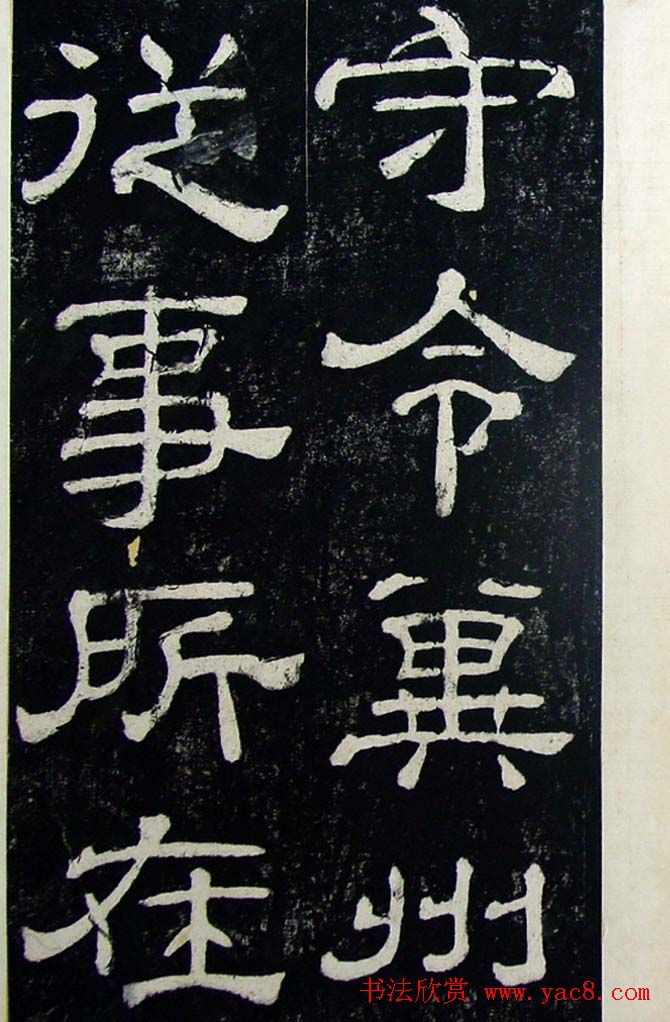 守令冀州
従事所在
书法欣赏 www.yac8.com